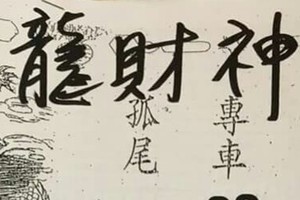 龍財神
專車
孤尾